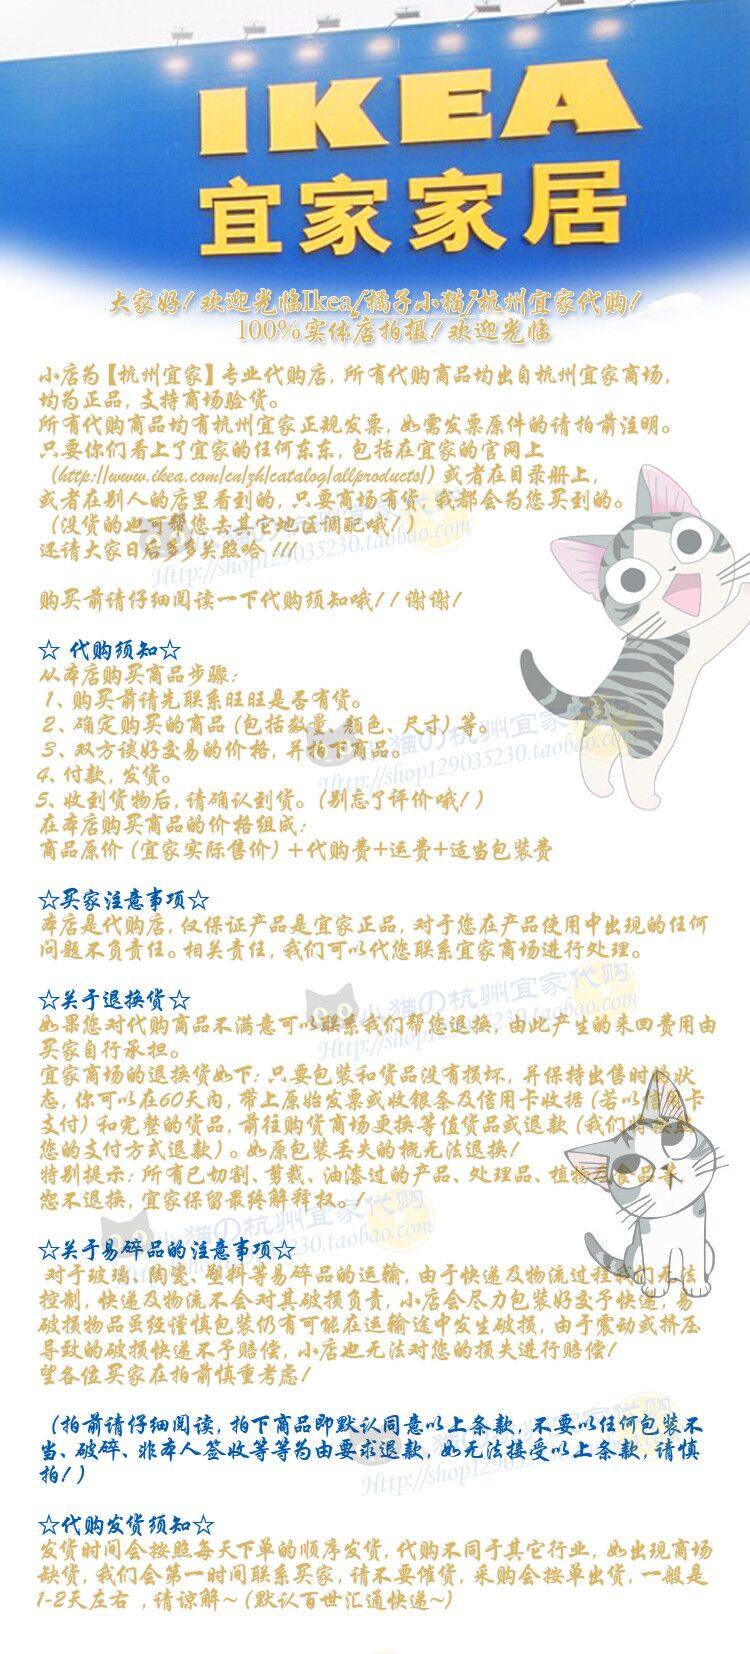 IKEA
宜家家居
大家好！欢迎光临Ikea/橘子小猫/杭州宜家代购！
100%实体店拍摄！欢迎光临
小店为【杭州宜家】专业代购店，所有代购商品均出自杭州宜家商场，
均为正品，支持商场验货。
所有代购商品均有杭州宜家正规发票，如需发票原件的请拍前注明。
只要你们看上了宜家的任何东东，包括在宜家的官网上
（http://www.ikea.com/cn/zh/catalog/allproducts/）或者在目录册上，
或者在别人的店里看到的，只要商场有货，我都会为您买到的。
（没货的也可帮您去其它地区调配哦！）
还请大家日后多多关照哈！！！！
小猫の杭州宜家代购
Http://shop129035230.taobao.com
购买前请仔细阅读一下代购须知哦！！谢谢！
☆ 代购须知☆
从本店购买商品步骤：
1、购买前请先联系旺旺是否有货。
2、确定购买的商品（包括数量、颜色、尺寸）等。
3、双方谈好交易的价格，并拍下商品。
4、付款，发货。
5、收到货物后，请确认到货。（别忘了评价哦！）
小猫の杭州宜家代购
Http://shop129035230.taobao.com
在本店购买商品的价格组成：
商品原价（宜家实际售价）+代购费+运费+适当包装费
☆买家注意事项☆
本店是代购店，仅保证产品是宜家正品，对于您在产品使用中出现的任何
问题不负责任。相关责任，我们可以代您联系宜家商场进行处理。
☆关于退换货☆
小猫の杭州宜家代购
Http://shop129035230.taobao.com
如果您对代购商品不满意可以联系我们帮您退换，由此产生的来回费用由
买家自行承担。
宜家商场的退换货如下：只要包装和货品没有损坏，并保持出售时的状
态，你可以在60天内，带上原始发票或收银条及信用卡收据（若以信用卡
支付）和完整的货品，前往购货商场更换等值货品或退款（我们将按
您的支付方式退款）。如原包装丢失的概无法退换！
特别提示：所有已切割、剪裁、油漆过的产品、处理品、植物或食品等
恕不退换，宜家保留最终解释权。！
小猫の杭州宜家代购
Http://shop129035230.taobao.com
☆关于易碎品的注意事项☆
对于玻璃、陶瓷、塑料等易碎品的运输，由于快递及物流过程我们无法
控制，快递及物流不会对其破损负责，小店会尽力包装好交予快递，易
破损物品虽经谨慎包装仍有可能在运输途中发生破损，由于震动或挤压
导致的破损快递不予赔偿，小店也无法对您的损失进行赔偿！
望各位买家在拍前慎重考虑！
（拍前请仔细阅读，拍下商品即默认同意以上条款，不要以任何包装不
当、破碎、非本人签收等等为由要求退款，如无法接受以上条款，请慎
拍！）
小猫の杭州宜家代购
Http://shop129035230.taobao.com
☆代购发货须知☆
发货时间会按照每天下单的顺序发货，代购不同于其它行业，如出现商场
缺货，我们会第一时间联系买家，请不要催货，采购会按单出货，一般是
1-2天左右 ，请谅解~（默认百世汇通快递~）